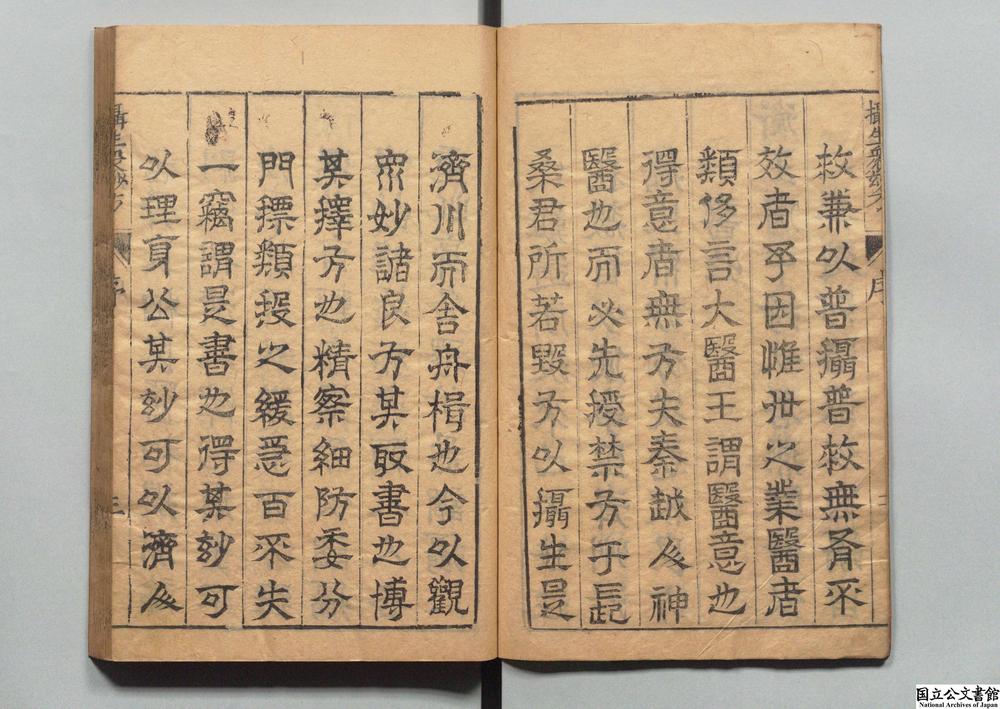 救兼以普攝普救無胥不
效者予因惟世之業醫者
類侈言大醫王謂醫意也
得意者無方夫秦越人神
醫也而必先授禁方于長
桑君所若毀方以攝生是
濟川而舍舟楫也今以觀
眾妙諸良方其取書也博
其擇方也精察細防委分
門摽類投之緩急百不失
一竊謂是書也得其玅可
以理身公其玅可以濟人
序
三
国立公文書館
National Archives of Japan